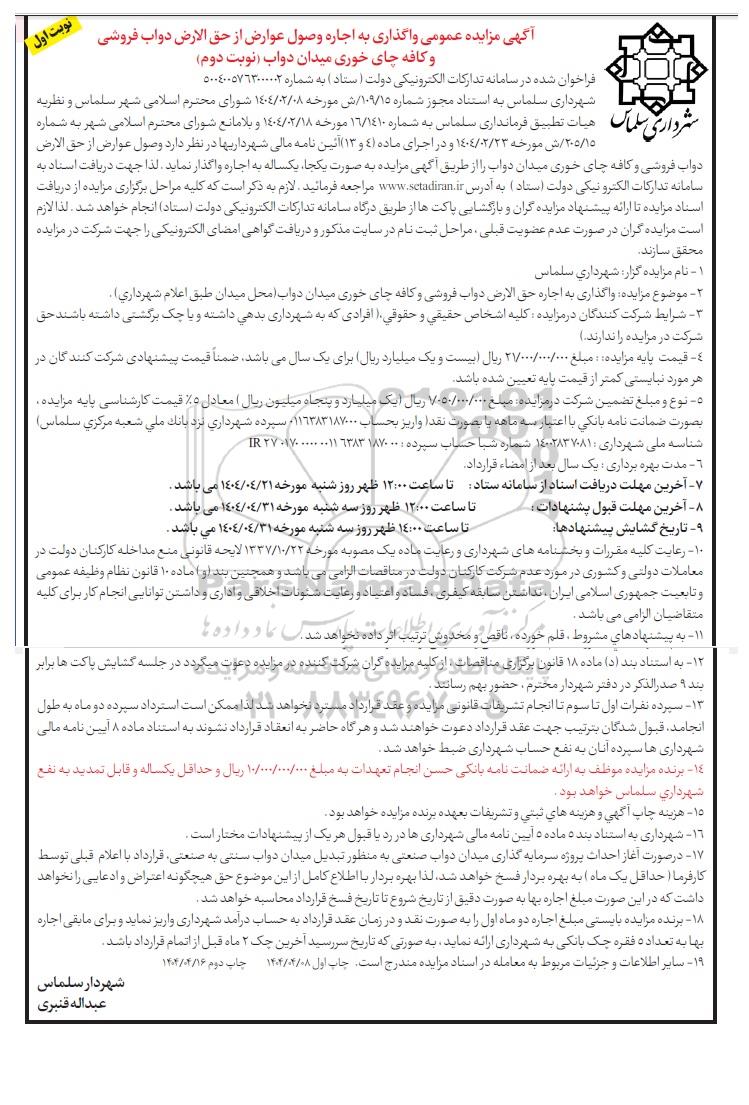 نوبت اول
آگهی مزایده عمومی واگذاری به اجاره وصول عوارض از حق الارض دواب فروشی
و کافه چای خوری میدان دواب (نوبت دوم)
شهرداری سلماس
فراخوان شده در سامانه تدارکات الکترونیکی دولت ( ستاد ) به شماره ۵۰۰۴۰۰۵۷۶۳۰۰۰۰۰۲
شهرداری سلماس به استناد مجوز شماره ۱۰۹/۱۵/ش مورخه ۱۴۰۴/۰۲/۰۸ شورای محترم اسلامی شهر سلماس و نظریه
هیات تطبیق فرمانداری سلماس به شماره ۱۶/۱۴۱۰ مورخه ۱۴۰۴/۰۲/۱۸ و بلامانع شورای محترم اسلامی شهر به شماره
۲۰۵/۱۵/ش مورخه ۱۴۰۴/۰۲/۲۳ و در اجرای ماده (۴ و ۱۳) آئین نامه مالی شهرداریها در نظر دارد وصول عوارض از حق الارض
دواب فروشی و کافه چای خوری میدان دواب را از طریق آگهی مزایده به صورت یکجا، یکساله به اجاره واگذار نماید . لذا جهت دریافت اسناد به
سامانه تدارکات الکترونیکی دولت (ستاد ) به آدرس www.setadiran.ir مراجعه فرمائید . لازم به ذکر است که کلیه مراحل برگزاری مزایده از دریافت
اسناد مزایده تا ارائه پیشنهاد مزایده گران و بازگشایی پاکت ها از طریق درگاه سامانه تدارکات الکترونیکی دولت (ستاد) انجام خواهد شد . لذا لازم
است مزایده گران در صورت عدم عضویت قبلی ، مراحل ثبت نام در سایت مذکور و دریافت گواهی امضای الکترونیکی را جهت شرکت در مزایده
محقق سازند.
۱- نام مزایده گزار: شهرداري سلماس
۲- موضوع مزایده: واگذاری به اجاره حق الارض دواب فروشی و کافه چای خوری میدان دواب(محل میدان طبق اعلام شهرداري) .
۳- شرایط شرکت کنندگان درمزایده : کلیه اشخاص حقیقي و حقوقي،( افرادی که به شهرداری بدهي داشته و یا چک برگشتی داشته باشندحق
شرکت در مزایده را ندارند.)
۴- قیمت پایه مزایده: : مبلغ ۲۷/۰۰۰/۰۰۰/۰۰۰ ریال (بیست و یک میلیارد ریال) برای یک سال می باشد، ضمناً قیمت پیشنهادی شرکت کنند گان در
هر مورد نبایستی کمتر از قیمت پایه تعیین شده باشد.
۵- نوع و مبلغ تضمین شرکت درمزایده: مبلغ ۷/۰۵۰/۰۰۰/۰۰۰ ریال (یک میلیارد و پنجاه میلیون ریال ) معادل ۵٪ قیمت کارشناسی پایه مزایده ،
بصورت ضمانت نامه بانکي با اعتبار سه ماهه یا بصورت نقد( واریز بحساب ۰۱۱۶۳۸۳۱۸۷۰۰۰ سپرده شهرداري نزد بانك ملي شعبه مركزي سلماس)
شناسه ملی شهرداری : ۱۴۰۰۲۸۳۷۰۸۱ شماره شبا حساب سپرده : IR ۲۷ ۰۱۷۰ ۰۰۰۰ ۰۰۱۱ ۶۳۸۳ ۱۸۷۰ ۰۰
۶- مدت بهره برداری : یک سال بعد از امضاء قرارداد.
۷- آخرین مهلت دریافت اسناد از سامانه ستاد : تا ساعت ۱۲:۰۰ ظهر روز شنبه مورخه ۱۴۰۴/۰۴/۲۱ می باشد .
۸- آخرین مهلت قبول پشنهادات : تا ساعت ۱۲:۰۰ ظهر روز سه شنبه مورخه ۱۴۰۴/۰۴/۳۱ می باشد .
۹- تاریخ گشایش پیشنهادها: تا ساعت ۱۴:۰۰ ظهر روز سه شنبه مورخه ۱۴۰۴/۰۴/۳۱ مي باشد .
۱۰- رعایت کلیه مقررات و بخشنامه های شهرداری و رعایت ماده یک مصوبه مورخه ۱۳۳۷/۱۰/۲۲ لایحه قانونی منع مداخله کارکنان دولت در
معاملات دولتی و کشوری در مورد عدم شرکت کارکنان دولت در مناقصات الزامی می باشد و همچنین بند ( و ) ماده ۱۰ قانون نظام وظیفه عمومی
و تابعیت جمهوری اسلامی ایران ، نداشتن سابقه کیفری ، فساد و اعتیاد و رعایت شئونات اخلاقی و اداری و داشتن توانایی انجام کار برای کلیه
متقاضیان الزامی می باشد .
۱۱- به پیشنهادهاي مشروط ، قلم خورده ، ناقص و مخدوش ترتیب اثر داده نخواهد شد .
۱۲- به استناد بند (د) ماده ۱۸ قانون برگزاری مناقصات ، از کلیه مزایده گران شرکت کننده در مزایده دعوت میگردد در جلسه گشایش پاکت ها برابر
بند ۹ صدرالذکر در دفتر شهردار محترم ، حضور بهم رسانند .
۱۳- سپرده نفرات اول تا سوم تا انجام تشریفات قانونی مزایده و عقد قرارداد مسترد نخواهد شد لذا ممکن است استرداد سپرده دو ماه به طول
انجامد، قبول شدگان بترتیب جهت عقد قرارداد دعوت خواهند شد و هر گاه حاضر به انعقاد قرارداد نشوند به استناد ماده ۸ آیین نامه مالی
شهرداری ها سپرده آنان به نفع حساب شهرداری ضبط خواهد شد .
۱۴- برنده مزایده موظف به ارائه ضمانت نامه بانکی حسن انجام تعهدات به مبلغ ۱۰/۰۰۰/۰۰۰/۰۰۰ ریال و حداقل یکساله و قابل تمدید به نفع
شهرداري سلماس خواهد بود .
۱۵- هزینه چاپ آگهي و هزینه هاي ثبتي و تشریفات بعهده برنده مزایده خواهد بود .
۱۶- شهرداری به استناد بند ۵ ماده ۵ آیین نامه مالی شهرداری ها در رد یا قبول هر یک از پیشنهادات مختار است .
۱۷- درصورت آغاز احداث پروژه سرمایه گذاری میدان دواب صنعتی به منظور تبدیل میدان دواب سنتی به صنعتی، قرارداد با اعلام قبلی توسط
کارفرما ( حداقل یک ماه ) به بهره بردار فسخ خواهد شد، لذا بهره بردار با اطلاع کامل از این موضوع حق هیچگونه اعتراض و ادعایی را نخواهد
داشت که در این صورت مبلغ اجاره بها به صورت دقیق از تاریخ شروع تا تاریخ فسخ قرارداد محاسبه خواهد شد .
۱۸- برنده مزایده بایستی مبلغ اجاره دو ماه اول را به صورت نقد و در زمان عقد قرارداد به حساب درآمد شهرداری واریز نماید و برای مابقی اجاره
بها به تعداد ۵ فقره چک بانکی به شهرداری ارائه نماید ، به صورتی که تاریخ سررسید آخرین چک ۲ ماه قبل از اتمام قرارداد باشد .
۱۹- سایر اطلاعات و جزئیات مربوط به معامله در اسناد مزایده مندرج است. چاپ اول ۱۴۰۴/۰۴/۰۸ چاپ دوم ۱۴۰۴/۰۴/۱۶
شهردار سلماس
عبداله قنبری
ParsNamadData
پایگاه اطلاع رسانی مناقصه و مزایده
۰۲۱-۸۸۳۴۹۶۷۰